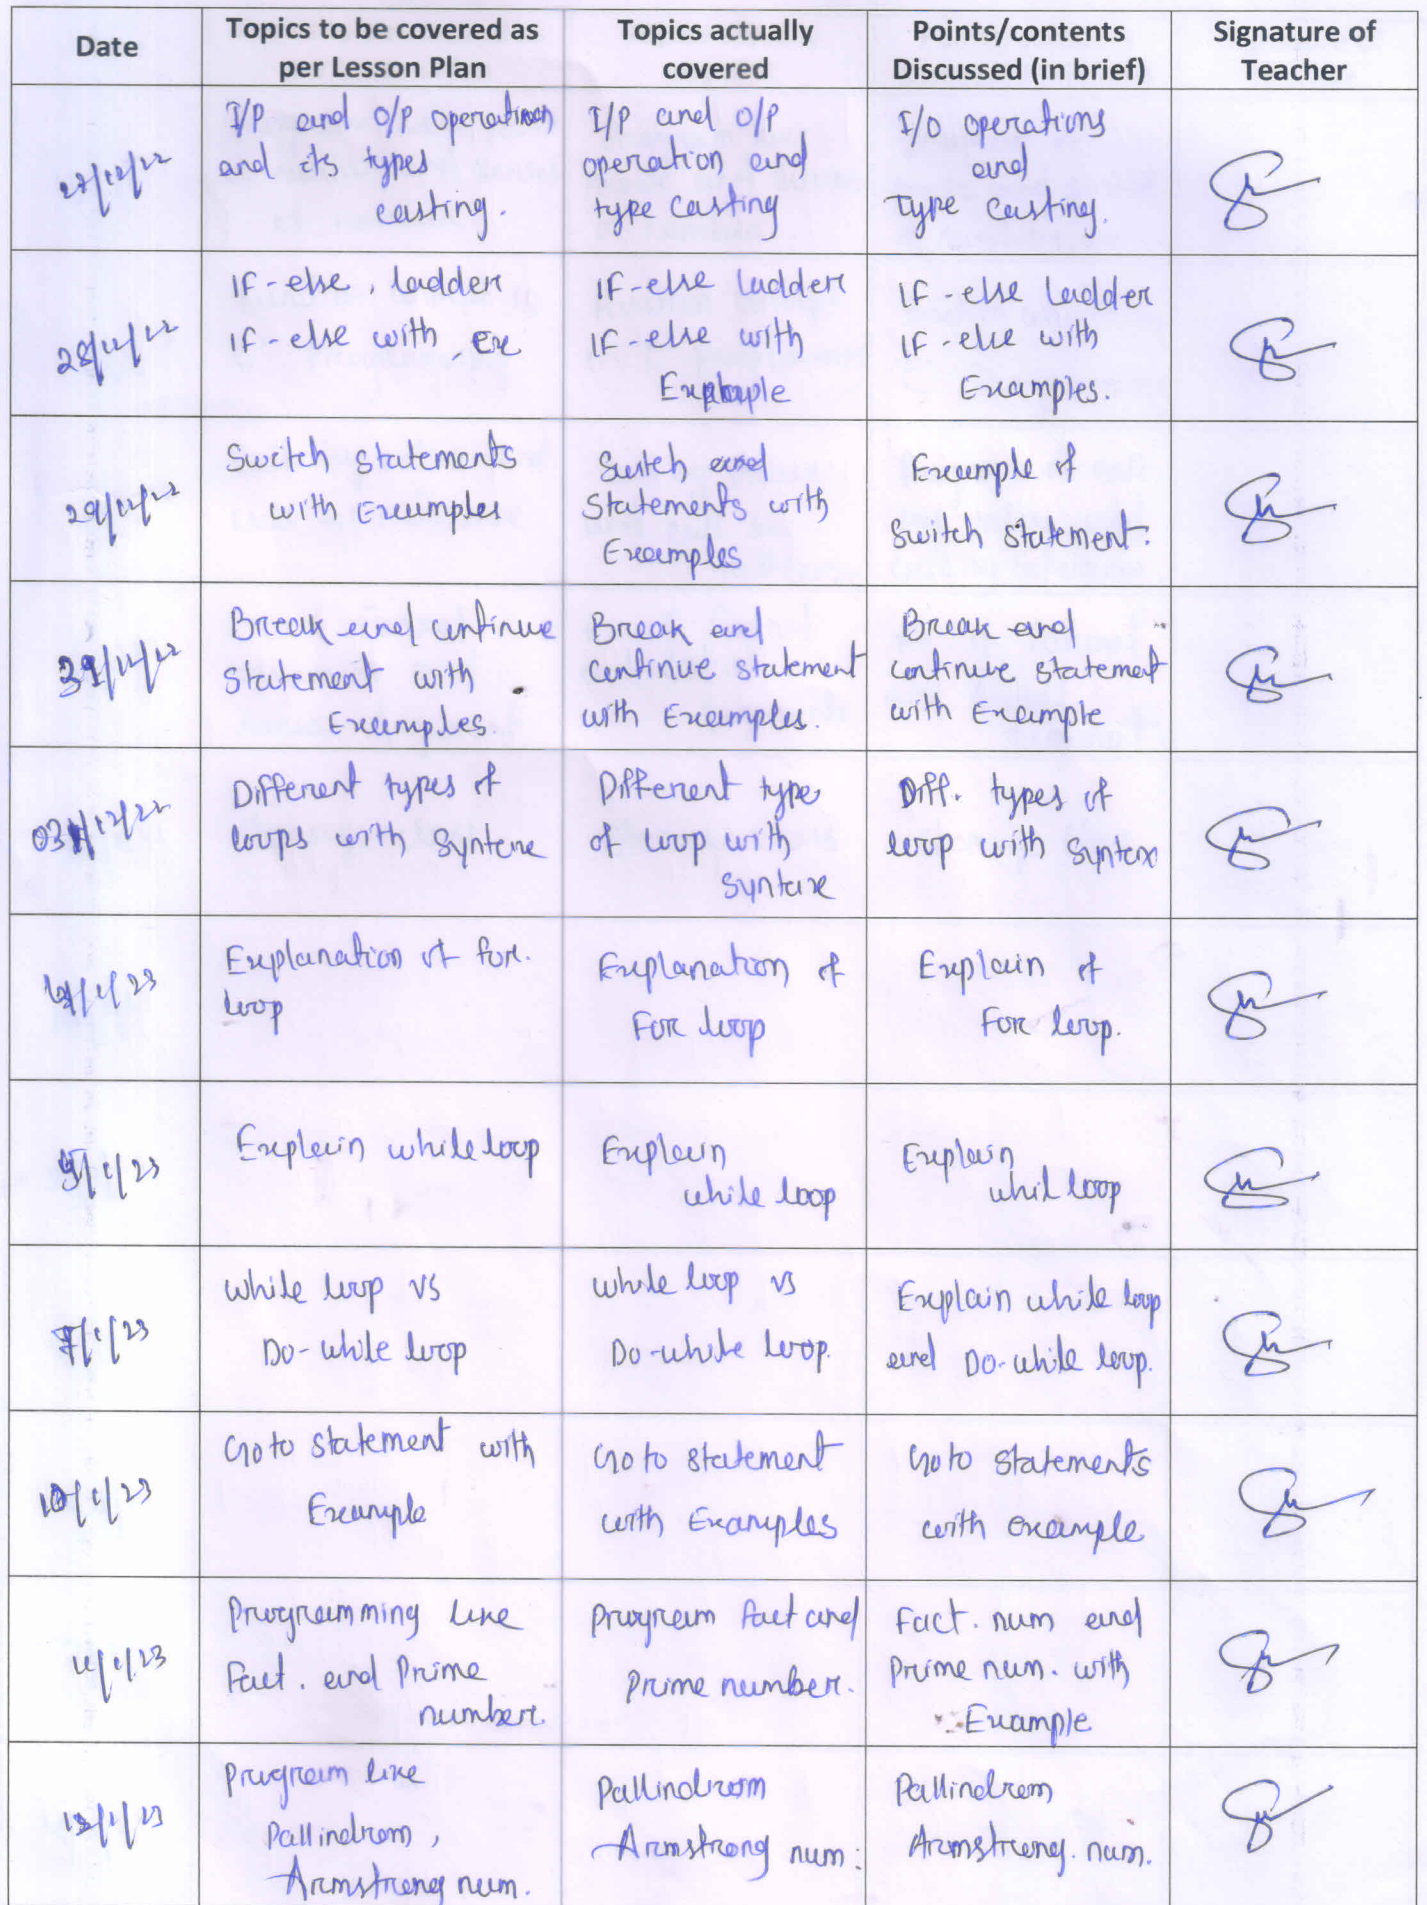 Date
Topics to be covered as
per Lesson Plan
Topics actually
covered
Points/contents
Discussed (in brief)
Signature of
Teacher
I/P and O/P operation
and its types
casting.
I/P and O/P
operation and
type casting
I/O operations
and
Type casting.
28/12/22
IF-else, ladder
IF-else with Ex
IF-else ladder
IF-else with
Example
IF-else ladder
IF-else with
Examples.
29/12/22
Switch statements
with Examples
Switch and
Statements with
Examples
Example of
Switch statement.
Break and continue
Statement with
Examples.
Break and
Continue statement
with Examples.
Break and
continue statement
with Example
Different types of
loops with Syntax
Different type
of loop with
Syntax
Diff. types of
loop with Syntax
Explanation of for.
loop
Explanation of
For loop
Explain of
For loop.
5/1/23
Explain while loop
Explain
while loop
Explain
whil loop
7/1/23
While loop vs
Do-while loop
While loop vs
Do-while loop.
Explain while loop
and Do-while loop.
10/1/23
Goto statement with
Example
Goto statement
with Examples
Goto statements
with example
11/1/23
Programming like
Fact. and Prime
number.
Program fact and
Prime number.
Fact. num and
Prime num. with
Example
Program like
Pallindrom,
Armstrong num.
Pallindrom
Armstrong num.
Pallindrom
Armstrong. num.